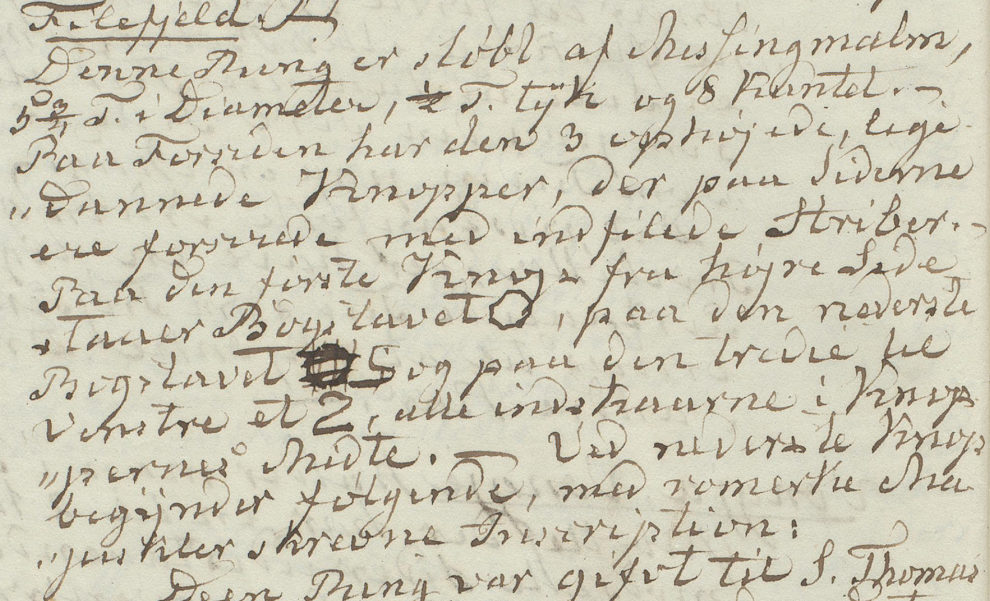 Filefjeld.
Denne Ring er støbt af Messingmalm,
5 3/4 T. i Diameter, 1/2 T. tÿk og 8 kantet. -
Paa Forsiden har den 3 ophøjede, lige
„dannede Knopper, der paa Siderne
ere forsirede med indfilede Striber. -
Paa den første Knop fra højre Side
staaer Bogstavet O, paa den nederste
Bogstavet S og paa den tredie til
venstre et Z, alle indskaarne i Knop
„pernes Midte. — Ved nederste Knop
begÿnder følgende, med romerske Ma
„juskler skrevne Inscription:
Deen Ring var gifvt til S. Thomas